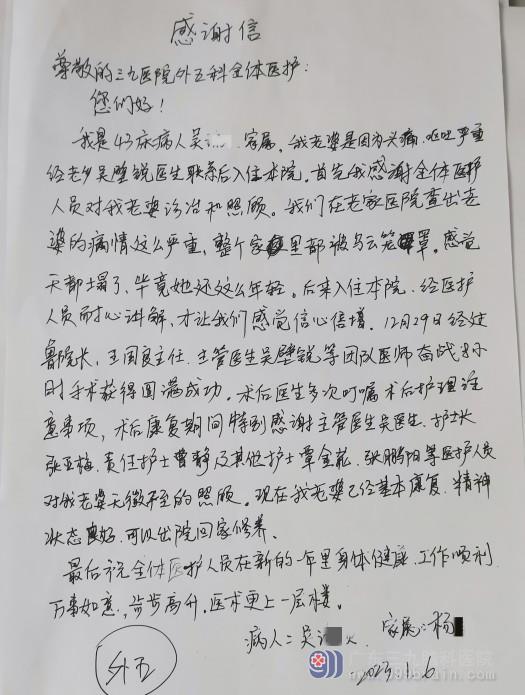 感谢信
尊敬的三九医院外五科全体医护：
您们好！
我是43床病人吴 家属，我老婆是因为头痛，呕吐严重
经老乡吴壁锐医生联系后入住本院。首先我感谢全体医护
人员对我老婆诊治和照顾。我们在老家医院查出老
婆的病情这么严重，整个家里都被乌云笼罩。感觉
天都塌了，毕竟她还这么年轻。后来入住本院，经医护
人员耐心讲解，才让我们感觉信心倍增，12月29日经过
鲁院长，王国良主任，主管医生吴壁锐等团队医师奋战8小
时手术获得圆满成功。术后医生多次叮嘱术后护理注
意事项，术后康复期间特别感谢主管医生吴医生，护士长
张亚梅，责任护士曹静及其他护士覃金花，张鹏阳等医护人员
对我老婆无微不至的照顾。现在我老婆已经基本康复，精神
状态良好，可以出院回家修养。
最后祝全体医护人员在新的一年里身体健康，工作顺利
万事如意，步步高升，医术更上一层楼。
病人：吴 家属：杨
外五
2023.1.6
广东三九脑科医院
www.999brain.com